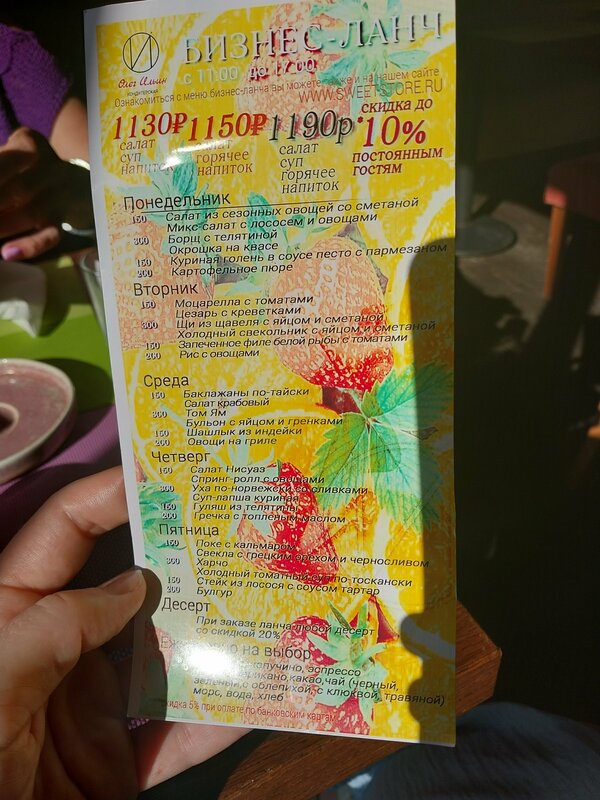 Олег Ильин
КОНДИТЕРСКАЯ
БИЗНЕС-ЛАНЧ
с 11:00 до 17:00
Ознакомиться с меню бизнес-ланча вы можете также и на нашем сайте
WWW.SWEET-STORE.RU
1130₽ 1150₽ 1190р
салат
суп
напиток
салат
горячее
напиток
салат
суп
горячее
напиток
скидка до
*10%
постоянным
гостям
Понедельник
150 Салат из сезонных овощей со сметаной
Микс-салат с лососем и овощами
300 Борщ с телятиной
Окрошка на квасе
150 Куриная голень в соусе песто с пармезаном
200 Картофельное пюре
Вторник
150 Моцарелла с томатами
Цезарь с креветками
300 Щи из щавеля с яйцом и сметаной
Холодный свекольник с яйцом и сметаной
150 Запеченное филе белой рыбы с томатами
200 Рис с овощами
Среда
150 Баклажаны по-тайски
Салат крабовый
300 Том Ям
Бульон с яйцом и гренками
150 Шашлык из индейки
200 Овощи на гриле
Четверг
150 Салат Нисуаз
Спринг-ролл с овощами
300 Уха по-норвежски со сливками
Суп-лапша куриная
150 Гуляш из телятины
200 Гречка с топленым маслом
Пятница
150 Поке с кальмаром
Свекла с грецким орехом и черносливом
300 Харчо
Холодный томатный суп по-тоскански
150 Стейк из лосося с соусом тартар
200 Булгур
Десерт
При заказе ланча любой десерт
со скидкой 20%
на выбор
капучино, эспрессо
какао, чай (черный,
зеленый с облепихой, с клюквой, травяной)
морс, вода, хлеб
скидка 5% при оплате по банковским картам